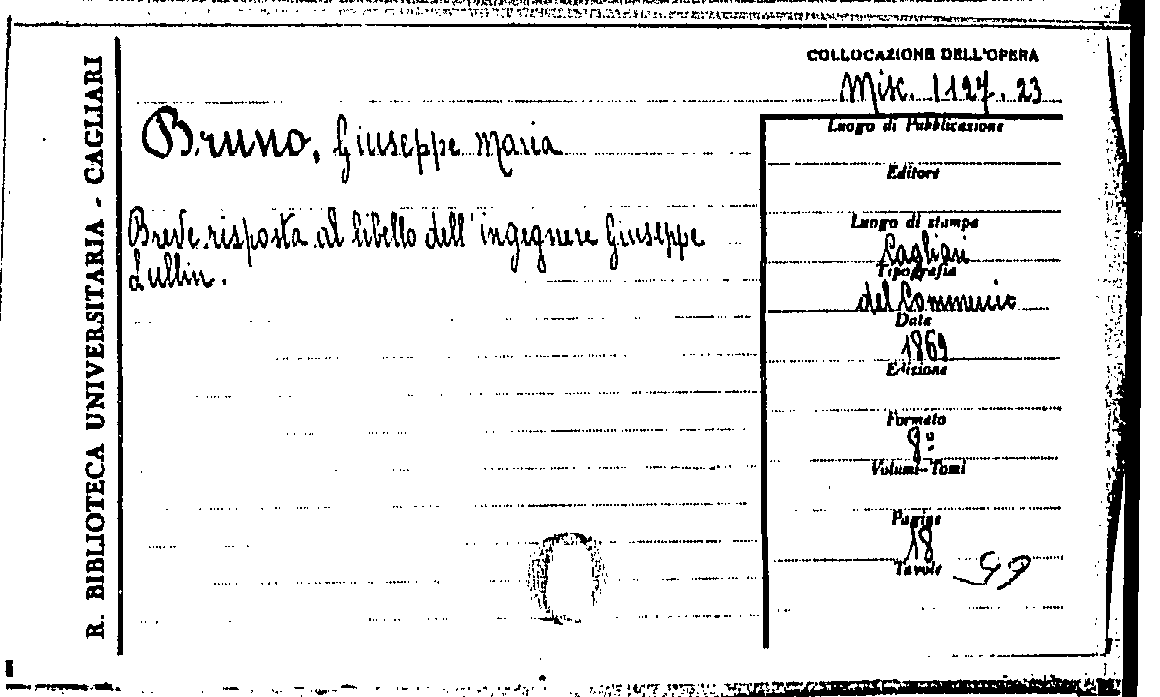 R. BIBLIOTECA UNIVERSITARIA - CAGLIARI
COLLOCAZIONE DELL'OPERA
Misc. 1127. 23
Bruno, Giuseppe Maria
Breve risposta al libello dell'ingegnere Giuseppe
Lullin.
Luogo di Pubblicazione
Editore
Luogo di stampa
Cagliari
Tipografia
del Commercio
Data
1869
Edizione
Formato
8º
Volumi-Tomi
Pagine
18
Tavole